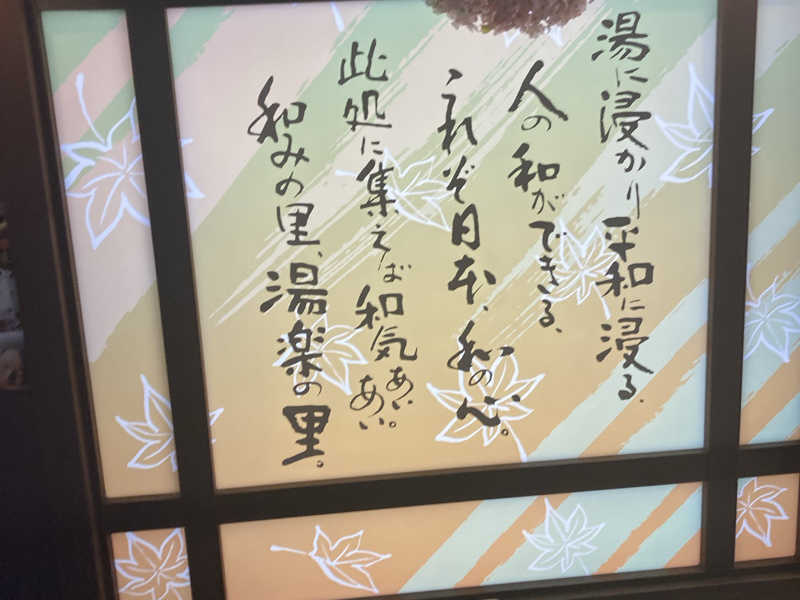 湯に浸かり平和に浸る。
人の和ができる、
これぞ日本、和の心。
此処に集えば和気あいあい。
和みの里、湯楽の里。